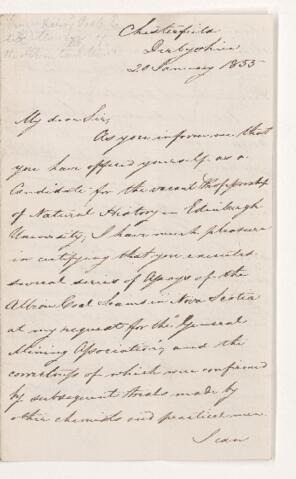 Chesterfield
Derbyshire
20 January 1855
My dear Sir,
As you inform me that
you have offered yourself as a
Candidate for the vacant Professorship
of Natural History in Edinburgh
University, I have much pleasure
in certifying that you executed
several series of Assays of the
Albion Coal Seams in Nova Scotia
at my request for the "General
Mining Association", and the
correctness of which were confirmed
by subsequent trials made by
other chemists and practical men.
I can